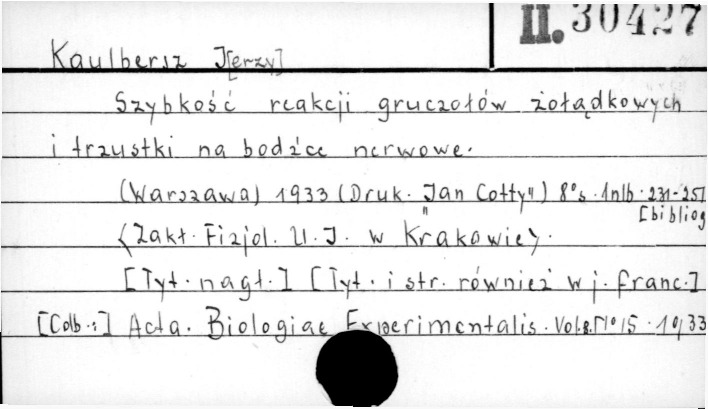 II. 30427
Kaulbersz J[erzy]
Szybkość reakcji gruczołów żołądkowych
i trzustki na bodźce nerwowe.
(Warszawa) 1933 (Druk. "Jan Cotty") 8° s. 1nlb. 231-251
[bibliog
<Zakł. Fizjol. U. J. w Krakowie>.
[Tyt. nagł.] [Tyt. i str. również w j. franc.]
[Odb.:] Acta. Biologiae Experimentalis. Vol.8. No 15. 1933